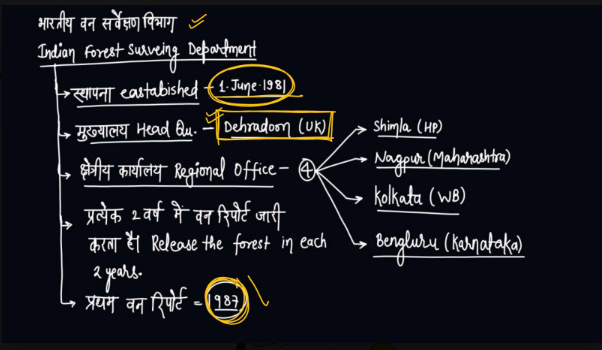 भारतीय वन सर्वेक्षण विभाग
Indian Forest Surveing Department
स्थापना eastabished - 1.June.1981
मुख्यालय Head Qu. - Dehradoon (UK)
क्षेत्रीय कार्यालय Regional Office - 4
Shimla (HP)
Nagpur (Maharashtra)
Kolkata (WB)
Bengluru (Karnataka)
प्रत्येक 2 वर्ष में वन रिपोर्ट जारी
करता है। Release the forest in each
2 years.
प्रथम वन रिपोर्ट = 1987